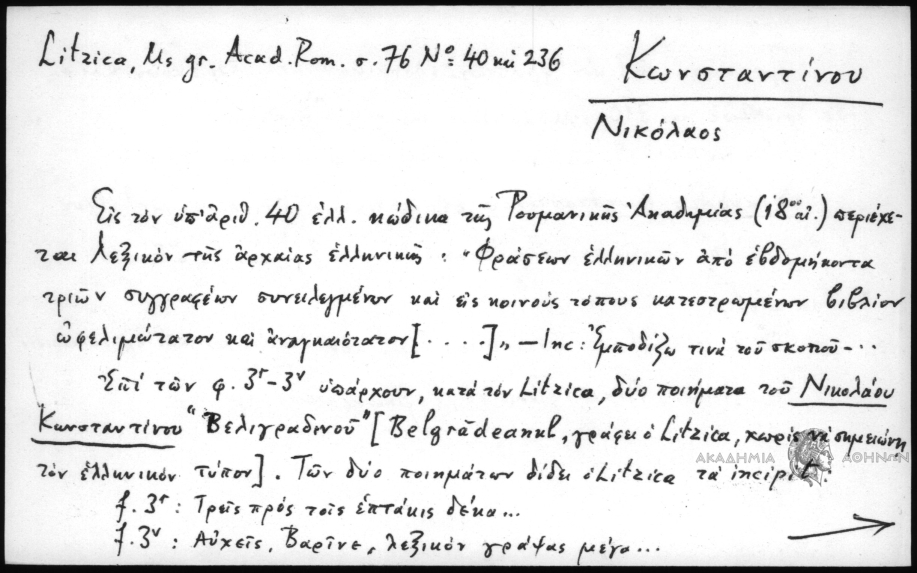 Litzica, Ms gr. Acad. Rom. σ. 76 Nº 40 καὶ 236
Κωνσταντίνου
Νικόλαος
Εἰς τὸν ὑπ' ἀριθ. 40 ἑλλ. κώδικα τῆς Ρουμανικῆς Ἀκαδημίας (18ου αἰ.) περιέχε-
ται λεξικὸν τῆς ἀρχαίας ἑλληνικῆς: "Φράσεων ἑλληνικῶν ἀπὸ ἑβδομήκοντα
τριῶν συγγραφέων συνειλεγμένων καὶ εἰς κοινοὺς τόπους κατεστρωμένων βιβλίον
ὠφελιμώτατον καὶ ἀναγκαιότατον [. . . .]" — Inc: Ἐμποδίζω τινὰ τοῦ σκοποῦ – ...
Ἐπὶ τῶν φ. 3r–3v ὑπάρχουν, κατὰ τὸν Litzica, δύο ποιήματα τοῦ Νικολάου
Κωνσταντίνου "Βελιγραδινοῦ" [Belgrădeanul, γράφει ὁ Litzica, χωρὶς νὰ σημειώνῃ
τὸν ἑλληνικὸν τύπον]. Τῶν δύο ποιημάτων δίδει ὁ Litzica τὰ incipit:
ΑΚΑΔΗΜΙΑ ΑΘΗΝΩΝ
f. 3r : Τρεῖς πρὸς τοῖς ἑπτάκις δέκα...
f. 3v : Αὐχεῖς, Βαρῖνε, λεξικὸν γράψας μέγα...